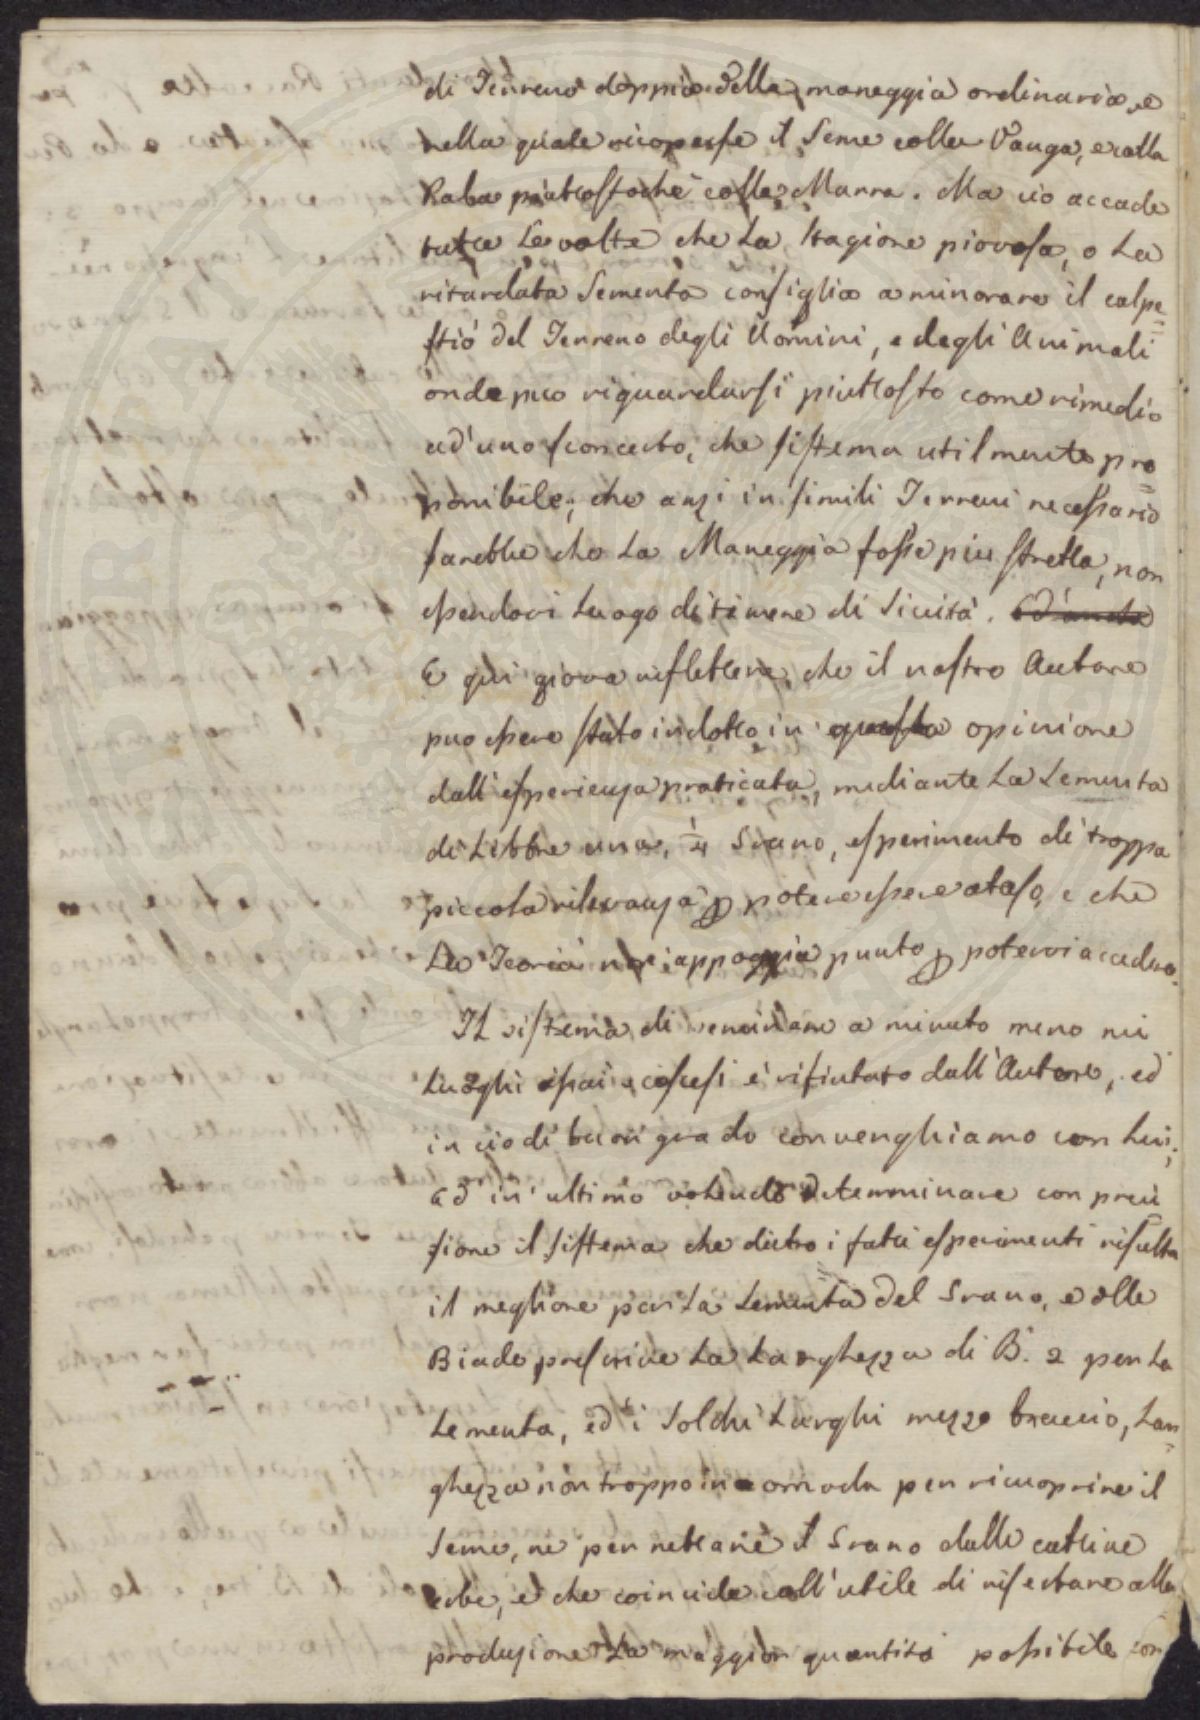 di Terreno doppia della maneggia ordinaria, e
nella quale ricopresse il seme colla Vanga, e colla
Raba piuttostochè colla Marra. Ma cio accade
tutte Le volte che La stagione piovosa, o La
ritardata Sementa consiglia a minorare il calpe=
stio del Terreno degli Uomini, e degli Animali
onde puo riguardarsi piuttosto come rimedio
ad'uno sconcerto, che sistema utilmente pro=
ponibile; che anzi in simili Terreni necessario
sarebbe che La Maneggia fosse piu stretta, non
essendovi Luogo di timere di Siccità.
E qui giova riflettere, che il nostro Autore
puo essere stato indotto in questa opinione
dall'esperienza praticata, mediante La Sementa
di Libbre una, 1/4 Grano, esperimento di troppa
piccola rilevanza p potere essere atteso, e che
La Teoria non appoggia punto p potervi accedere.
IL sistema di seminare a minuto meno nei
Luoghi assai scoscesi é rifiutato dall'Autore, ed
in cio di buon grado convenghiamo con Lui;
Ed in ultimo volendo determinare con preci
sione il sistema che dietro i fatti esperimenti risulta
il megliore per La Sementa del Grano, e delle
Biade prescrive La Larghezza di B. 2 per La
Sementa, ed i Solchi Larghi mezzo braccio, Lar=
ghezza non troppo incomoda per ricuoprire il
Seme, ne per nettare il Grano dalle cattive
erbe, e che coincide coll'utile di risecbare alla
produzione La maggior quantità possibile con